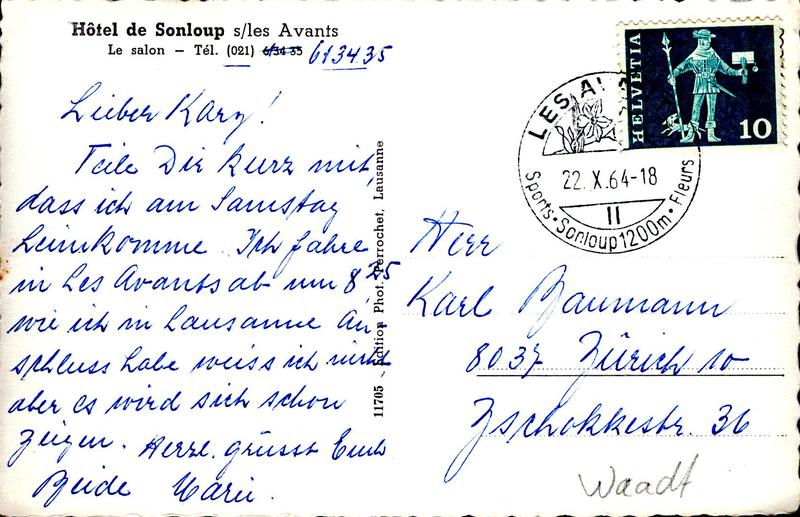 Hôtel de Sonloup s/les Avants
Le salon – Tél. (021) 6/34 35 613435
Lieber Kary!
Teile Dir kurz mit
dass ich am Samstag
heimkomme. Ich fahre
in Les Avants ab um 8 25
wie ich in Lausanne An-
schluss habe weiss ich nicht,
aber es wird sich schon
zeigen. Herzl. grüsst Euch
Beide Marie.
11705 Edition Phot. Perrochet, Lausanne
HELVETIA
10
LES A
22. X. 64-18
II
Sports · Sonloup 1200m · Fleurs
Herr
Karl Baumann
8037 Zürich 10
Zschokkestr. 36
Waadt